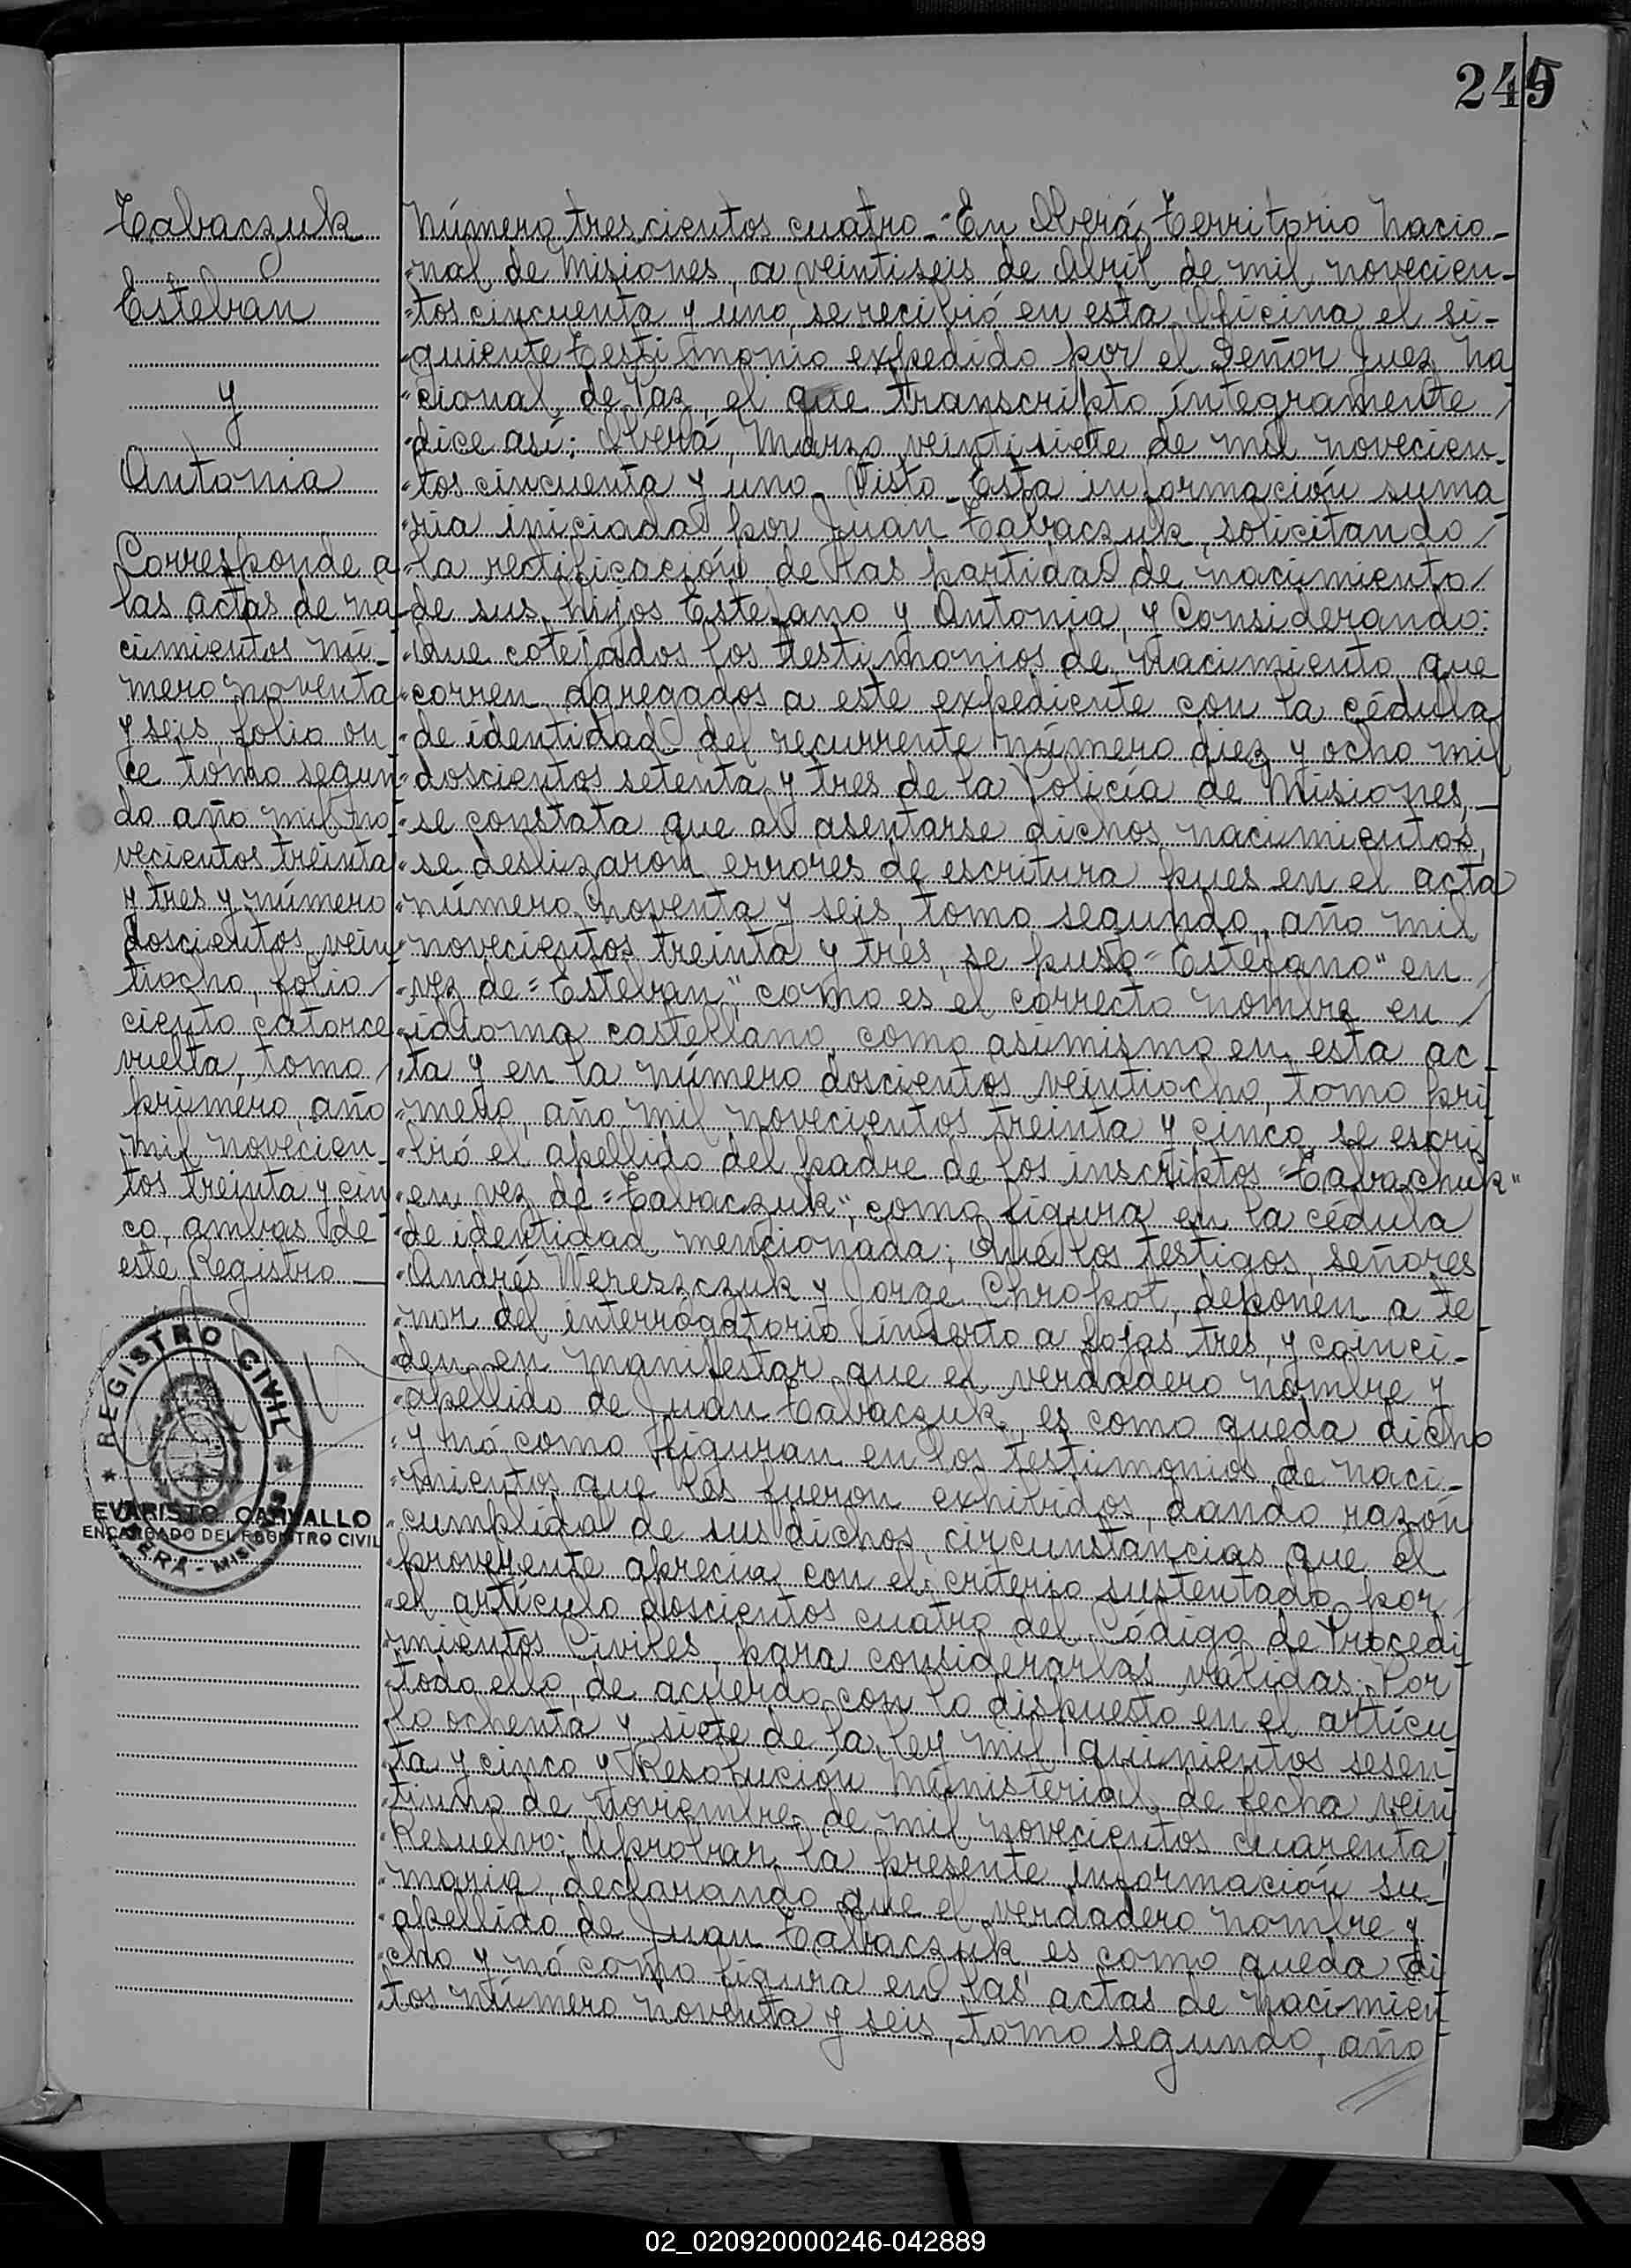 245
Tabaczuk
Esteban
y
Antonia
Corresponde a
las actas de na-
cimientos nú-
mero noventa
y seis, folio on
ce tomo segun
do año mil no-
vecientos treinta
y tres y número
doscientos vein
tiocho, folio /
ciento catorce
vuelta, tomo /
primero, año
mil novecien-
tos treinta y cin
co, ambas de
este Registro —
REGISTRO CIVIL
EVARISTO CARVALLO
ENCARGADO DEL REGISTRO CIVIL
OBERÁ - MISIONES
Número trescientos cuatro - En Oberá, Territorio Nacio-
"nal de Misiones, a veintiseis de Abril de mil novecien-
"tos cincuenta y uno, se recibió en esta Oficina el si-
"guiente Testimonio expedido por el Señor Juez Na
"cional de Paz, el que transcripto íntegramente /
"dice así: Oberá, Marzo veintisiete de mil novecien-
"tos cincuenta y uno. Visto - Esta información suma
"ria iniciada por Juan Tabaczuk, solicitando /
"la rectificación de las partidas de nacimiento /
"de sus hijos Estefano y Antonia, y Considerando:
"Que cotejados los testimonios de nacimiento que
"corren agregados a este expediente con la cédula
"de identidad del recurrente número diez y ocho mil
"doscientos setenta y tres de la Policía de Misiones, —
"se constata que al asentarse dichos nacimientos,
"se deslizaron errores de escritura pues en el acta
"número noventa y seis, tomo segundo, año mil
"novecientos treinta y tres, se puso "Estefano" en /
"vez de "Esteban", como es el correcto nombre en /
"idioma castellano, como asimismo en esta ac-
"ta y en la número doscientos veintiocho, tomo pri-
"mero, año mil novecientos treinta y cinco, se escri
"bió el apellido del padre de los inscriptos "Tabachuk"
"en vez de "Tabaczuk", como figura en la cédula
"de identidad mencionada; Que los testigos, señores
"Andrés Wereszczuk y Jorge Chropot, deponen a te-
"nor del interrogatorio inserto a fojas tres, y coinci-
"den en manifestar que el verdadero nombre y
"apellido de Juan Tabaczuk, es como queda dicho
"y nó como figuran en los testimonios de naci-
"mientos que les fueron exhibidos, dando razón
"cumplida de sus dichos, circunstancias que el
"proveyente aprecia con el criterio sustentado por /
"el artículo doscientos cuatro del Código de Procedi-
"mientos Civiles, para considerarlas válidas; Por
"todo ello, de acuerdo con lo dispuesto en el artícu
"lo ochenta y siete de la ley mil quinientos sesen-
"ta y cinco y Resolución Ministerial de fecha vein
"tiuno de noviembre de mil novecientos cuarenta,
"Resuelvo: Aprobar la presente información su-
"maria, declarando que el verdadero nombre y
"apellido de Juan Tabaczuk es como queda di
"cho y nó como figura en las actas de nacimien-
"tos número noventa y seis, tomo segundo, año
02_020920000246-042889